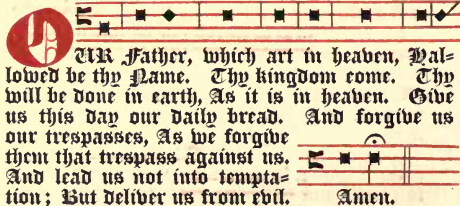 OUR Father, which art in heaven, Hal=
lowed be thy Name. Thy kingdom come. Thy
will be done in earth, As it is in heaven. Give
us this day our daily bread. And forgive us
our trespasses, As we forgive
them that trespass against us.
And lead us not into tempta=
tion; But deliver us from evil. Amen.